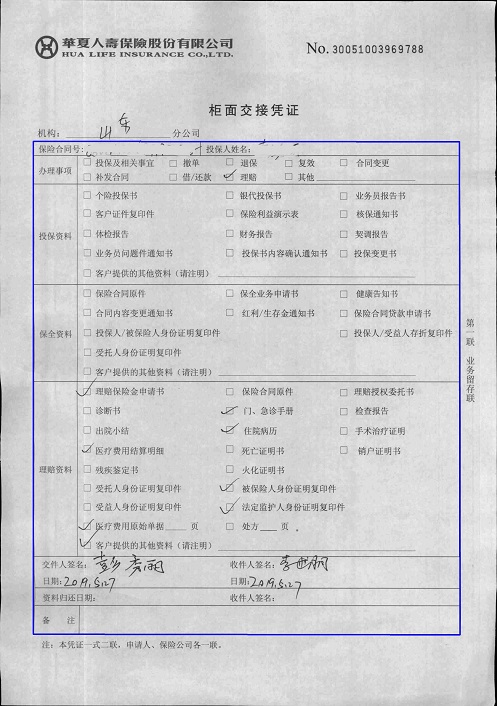 華夏人壽保險股份有限公司
HUA LIFE INSURANCE CO.,LTD.
No. 30051003969788
柜面交接凭证
机构: 山东 分公司
保险合同号: 投保人姓名:
办理事项 □ 投保及相关事宜 □ 撤单 □ 退保 □ 复效 □ 合同变更
□ 补发合同 □ 借/还款 ☑ 理赔 □ 其他
投保资料
□ 个险投保书 □ 银代投保书 □ 业务员报告书
□ 客户证件复印件 □ 保险利益演示表 □ 核保通知书
□ 体检报告 □ 财务报告 □ 契调报告
□ 业务员问题件通知书 □ 投保书内容确认通知书 □ 投保变更书
□ 客户提供的其他资料（请注明）
保全资料
□ 保险合同原件 □ 保全业务申请书 □ 健康告知书
□ 合同内容变更通知书 □ 红利/生存金通知书 □ 保险合同贷款申请书
□ 投保人/被保险人身份证明复印件 □ 投保人/受益人存折复印件
□ 受托人身份证明复印件
□ 客户提供的其他资料（请注明）
理赔资料
☑ 理赔保险金申请书 □ 保险合同原件 □ 理赔授权委托书
□ 诊断书 ☑ 门、急诊手册 □ 检查报告
□ 出院小结 ☑ 住院病历 □ 手术治疗证明
☑ 医疗费用结算明细 □ 死亡证明书 □ 销户证明书
□ 残疾鉴定书 □ 火化证明书
□ 受托人身份证明复印件 ☑ 被保险人身份证明复印件
□ 受益人身份证明复印件 ☑ 法定监护人身份证明复印件
☑ 医疗费用原始单据 页 □ 处方 页 。
☑ 客户提供的其他资料（请注明）
交件人签名: 彭秀丽 收件人签名:
日期: 2019.5.27 日期: 2019.5.27
资料归还日期: 收件人签名:
备 注
注: 本凭证一式二联，申请人、保险公司各一联。
第一联 业务留存联